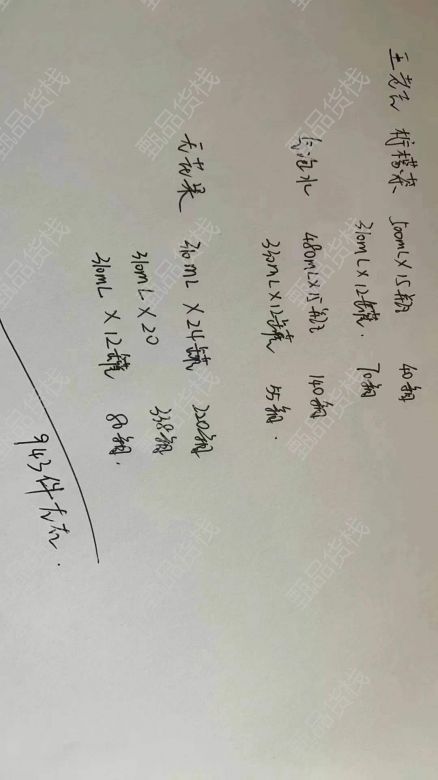 王老吉 柠檬茶 500mL×15瓶 40箱
310mL×12罐 70箱
气泡水 480mL×15瓶 140箱
330mL×12罐 55箱.
无花果 310mL×24罐 220箱
310mL×20 338箱
310mL×12罐 80箱.
943件左右.
甄品货栈